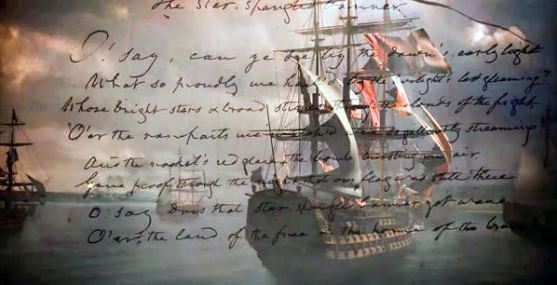 The Star-Spangled Banner
O! say, can ye see by the dawn's early light
What so proudly we hail'd at the twilight's last gleaming?
Whose bright stars & broad stripes the clouds of the fight
O'er the ramparts we watch'd gallantly streaming
And the rocket's red glare, the bomb bursting in air
Gave proof through the night that our flag was still there
O! say does that star-spangled banner yet wave
O'er the land of the free & the home of the brave